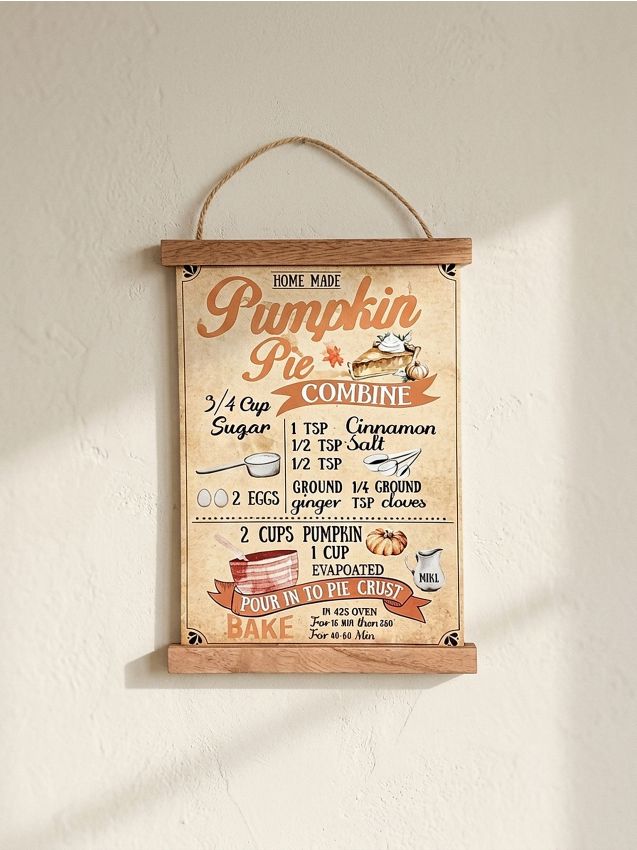 HOME MADE
Pumpkin
Pie
COMBINE
3/4 Cup
Sugar
1 TSP Cinnamon
1/2 TSP Salt
1/2 TSP
GROUND
ginger
1/4 GROUND
TSP cloves
2 EGGS
2 CUPS PUMPKIN
1 CUP
EVAPOATED
MIKL
POUR IN TO PIE CRUST
BAKE
IN 425 OVEN
For 16 MIA then 260°
For 40-60 Min